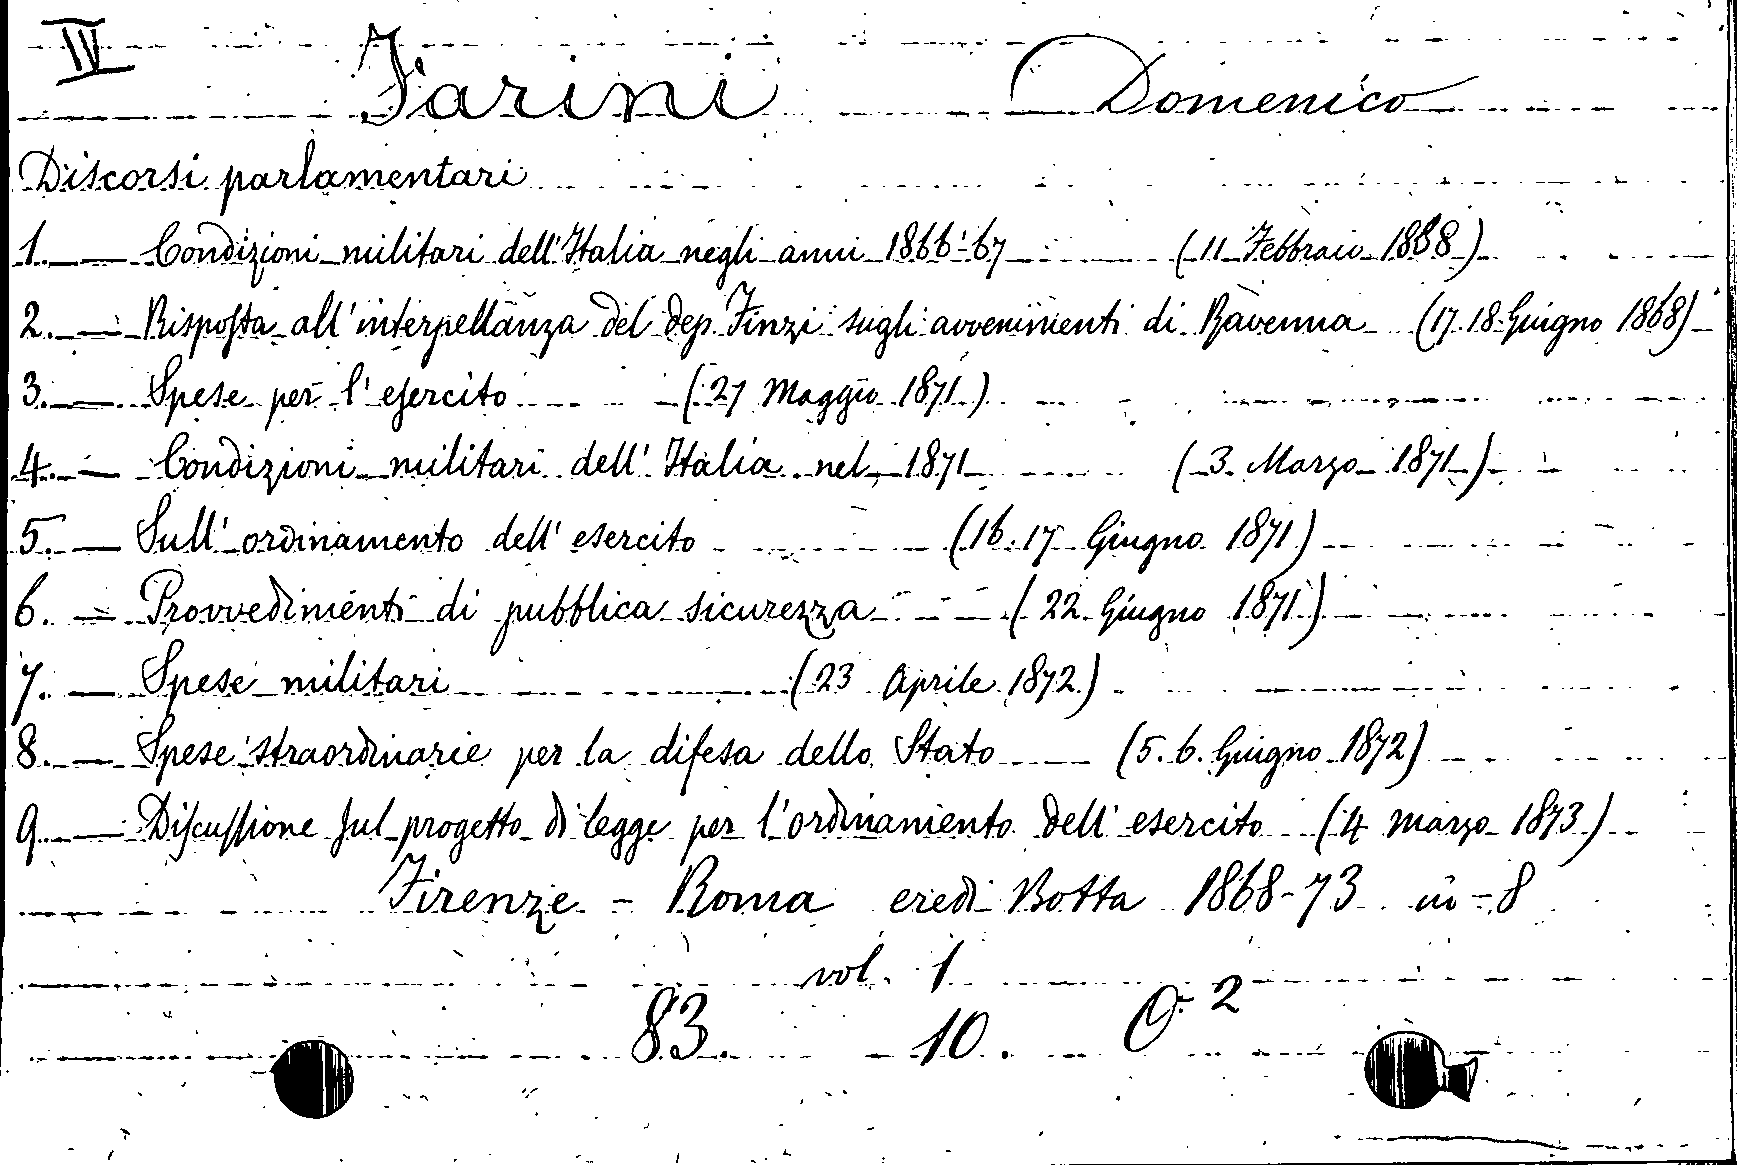 IV
Farini Domenico
Discorsi parlamentari
1. — Condizioni militari dell'Italia negli anni 1866-67 (11 Febbraio 1868)
2. — Risposta all'interpellanza del dep. Finzi sugli avvenimenti di Ravenna (17.18 Giugno 1868)
3. — Spese per l'esercito (27 Maggio 1871)
4. — Condizioni militari dell'Italia nel 1871 (3 Marzo 1871)
5. — Sull'ordinamento dell'esercito (16.17 Giugno 1871)
6. — Provvedimenti di pubblica sicurezza (22 Giugno 1871)
7. — Spese militari (23 Aprile 1872)
8. — Spese straordinarie per la difesa dello Stato (5.6. Giugno 1872)
9. — Discussione sul progetto di legge per l'ordinamento dell'esercito (4 Marzo 1873)
Firenze - Roma eredi Botta 1868-73 in-8
vol. 1
83. 10. O. 2